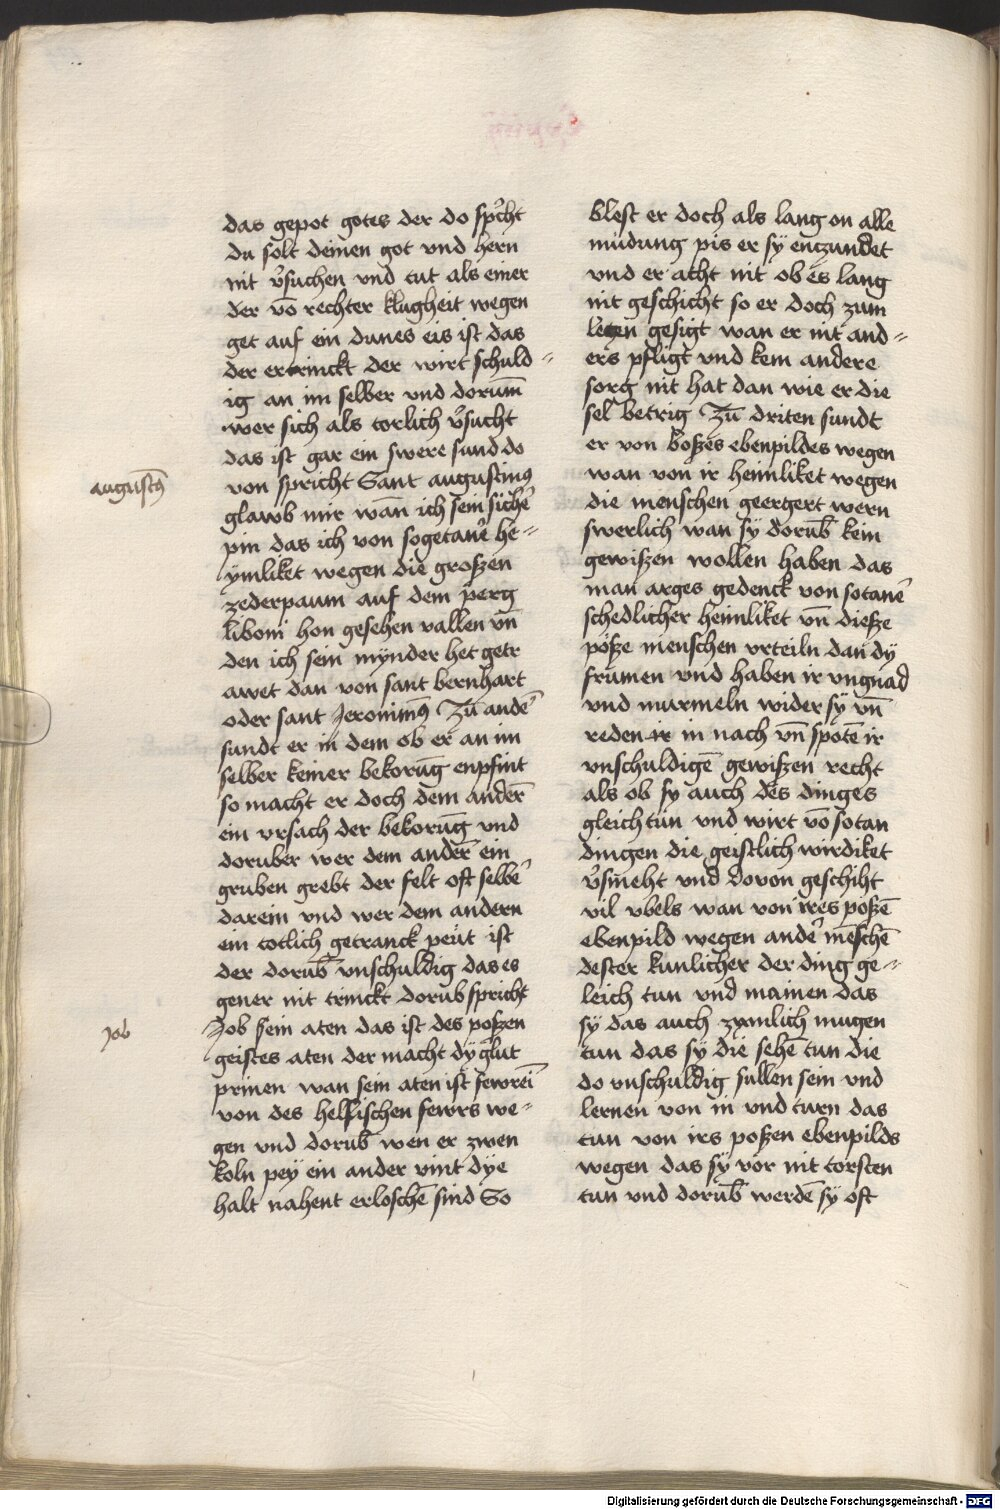 das gepot gotes der do sp̄cht
du solt deinen got vnd hern
nit v̄suchen vnd tut als einer
der vō rechter klugheit wegen
get auf ein dunes eis ist das
der ertrinckt der wirt schuld=
ig an im selber vnd dorum̄
wer sich als torlich v̄sucht
das ist gar ein swere sund do
von spricht Sant augustinꝰ
glawb mir wān ich sein sicher̄
pin das ich von sogetaner̄ he=
ymliket wegen die groszen
zederpaum auf dem perg
liboni hon gesehen vallen vn̄
den ich sein mynder het getr
awet dan von sant bernhart
oder sant Jeronimꝰ Zū ander̄
sundt er in dem ob er an im
selber keiner bekorūg enpfint
so macht er doch dem anderē
ein vrsach der bekorūg vnd
doruber wer dem anderē ein
gruben grebt der felt oft selber̄
darein vnd wer dem andern
ein totlich getranck peüt ist
der dorūb vnschuldig das es
gener nit trinckt dorūb spricht
Job sein aten das ist des poszen
geistes aten der macht dy glut
prinen wan sein aten ist fewrei
von des hellischen fewrs we=
gen vnd dorūb wen er zwen
koln pey ein ander vint dye
halt nahent erloschē sind So
augustꝰ
Job
blest er doch als lang on alle
müdung pis er sy enczundet
vnd er acht nit ob es lang
nit geschicht so er doch zum
leczen gesigt wan er nit and=
ers pfligt vnd kein andere
sorg nit hat dan wie er die
sel betrig Zū driten sundt
er von boszes ebenpildes wegen
wan von ir heimliket wegen
die menschen geergert wern
swerlich wan sy dorūb kein
gewiszen wollen haben das
man arges gedenck von sotaner̄
schedlicher heimliket vn̄ diesze
pösze menschen vrteiln dan dy
frümen vnd haben ir vngnad
vnd murmeln wider sy vn̄
reden ir in nach vn̄ spotē ir
vnschuldigē gewiszen recht
als ob sy auch des dinges
gleich tün vnd wirt vō sotan
dingen die geistlich wirdiket
v̄smeht vnd dovon geschiht
vil vbels wan von ires poszē
ebenpild wegen ander̄ mēschē
dester kunlicher der ding ge=
leich tun vnd mainen das
sy das auch zymlich mugen
tun das sy die sehē tun die
do vnschuldig sullen sein vnd
lernen von in vnd turn das
tun von irs poszen ebenpilds
wegen das sy vor nit torsten
tun vnd dorūb werdē sy oft
Digitalisierung gefördert durch die Deutsche Forschungsgemeinschaft - DFG